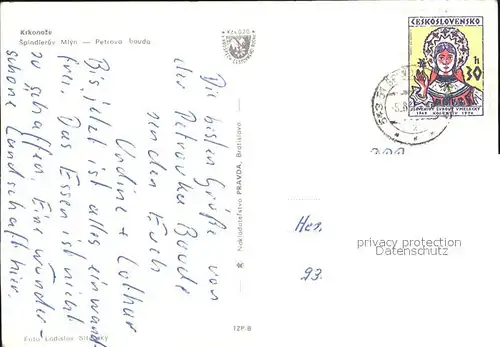 Krkonoše
Špindlerův Mlýn — Petrova bouda
Die besten Grüße von
der Petrovka Baude
senden Euch
Undine + Lothar
Bis jetzt ist alles einwand-
frei. Das Essen ist nicht
zu schaffen. Eine wunder-
schöne Landschaft hier.
Foto Ladislav
Nakladatelství PRAVDA, Bratislava
TZP-B
ČESKOSLOVENSKO
30 h
Her.
93.
privacy protection
Datenschutz